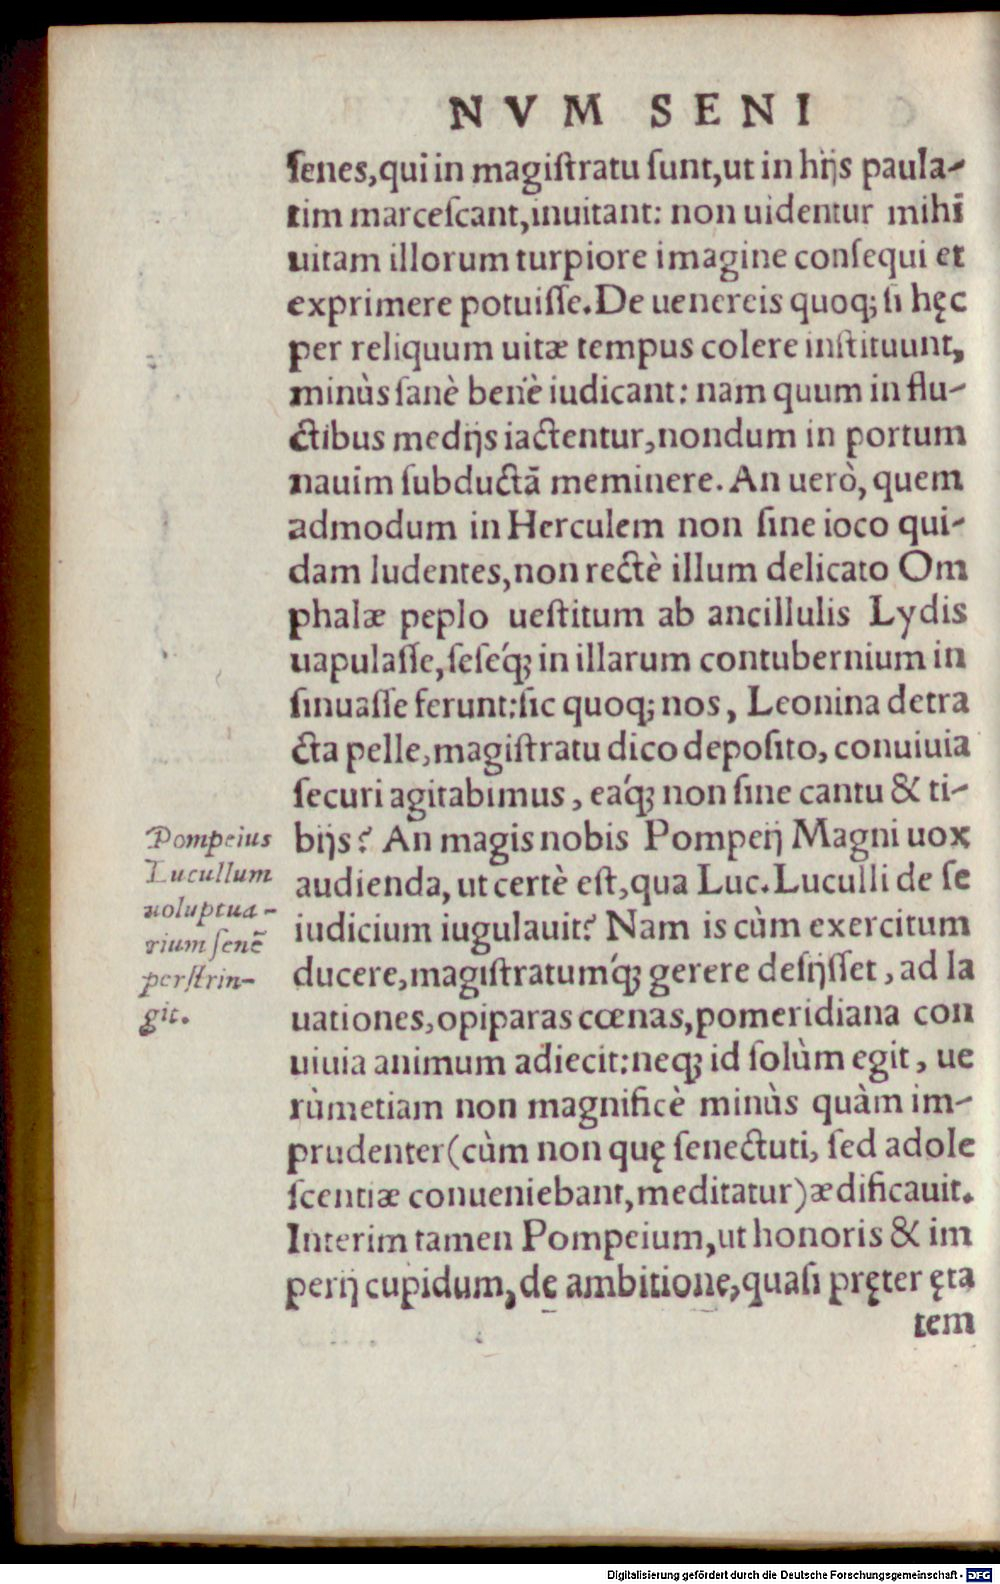 NVM SENI
ſenes,qui in magiſtratu ſunt,ut in hijs paula-
tim marceſcant,inuitant: non uidentur mihi
uitam illorum turpiore imagine conſequi et
exprimere potuiſſe.De uenereis quoq; ſi hęc
per reliquum uitæ tempus colere inſtituunt,
minùs ſanè benè iudicant: nam quum in flu-
ctibus medijs iactentur,nondum in portum
nauim ſubductã meminere. An uerò, quem
admodum in Herculem non ſine ioco qui-
dam ludentes,non rectè illum delicato Om
phalæ peplo ueſtitum ab ancillulis Lydis
uapulaſſe,ſeſeq́; in illarum contubernium in
ſinuaſſe ferunt:ſic quoq; nos, Leonina detra
cta pelle,magiſtratu dico depoſito, conuiuia
ſecuri agitabimus, eaq́; non ſine cantu & ti-
bijs? An magis nobis Pompeij Magni uox
audienda, ut certè eſt,qua Luc.Luculli de ſe
iudicium iugulauit? Nam is cùm exercitum
ducere,magiſtratumq́; gerere deſijſſet, ad la
uationes,opiparas cœnas,pomeridiana con
uiuia animum adiecit:neq; id ſolùm egit, ue
rùmetiam non magnificè minùs quàm im-
prudenter(cùm non quę ſenectuti, ſed adole
ſcentiæ conueniebant,meditatur)ædificauit.
Interim tamen Pompeium,ut honoris & im
perij cupidum, de ambitione,quaſi pręter ęta
tem
Pompeius
Lucullum
uoluptua-
rium ſenẽ
perſtrin-
git.
Digitalisierung gefördert durch die Deutsche Forschungsgemeinschaft - DFG